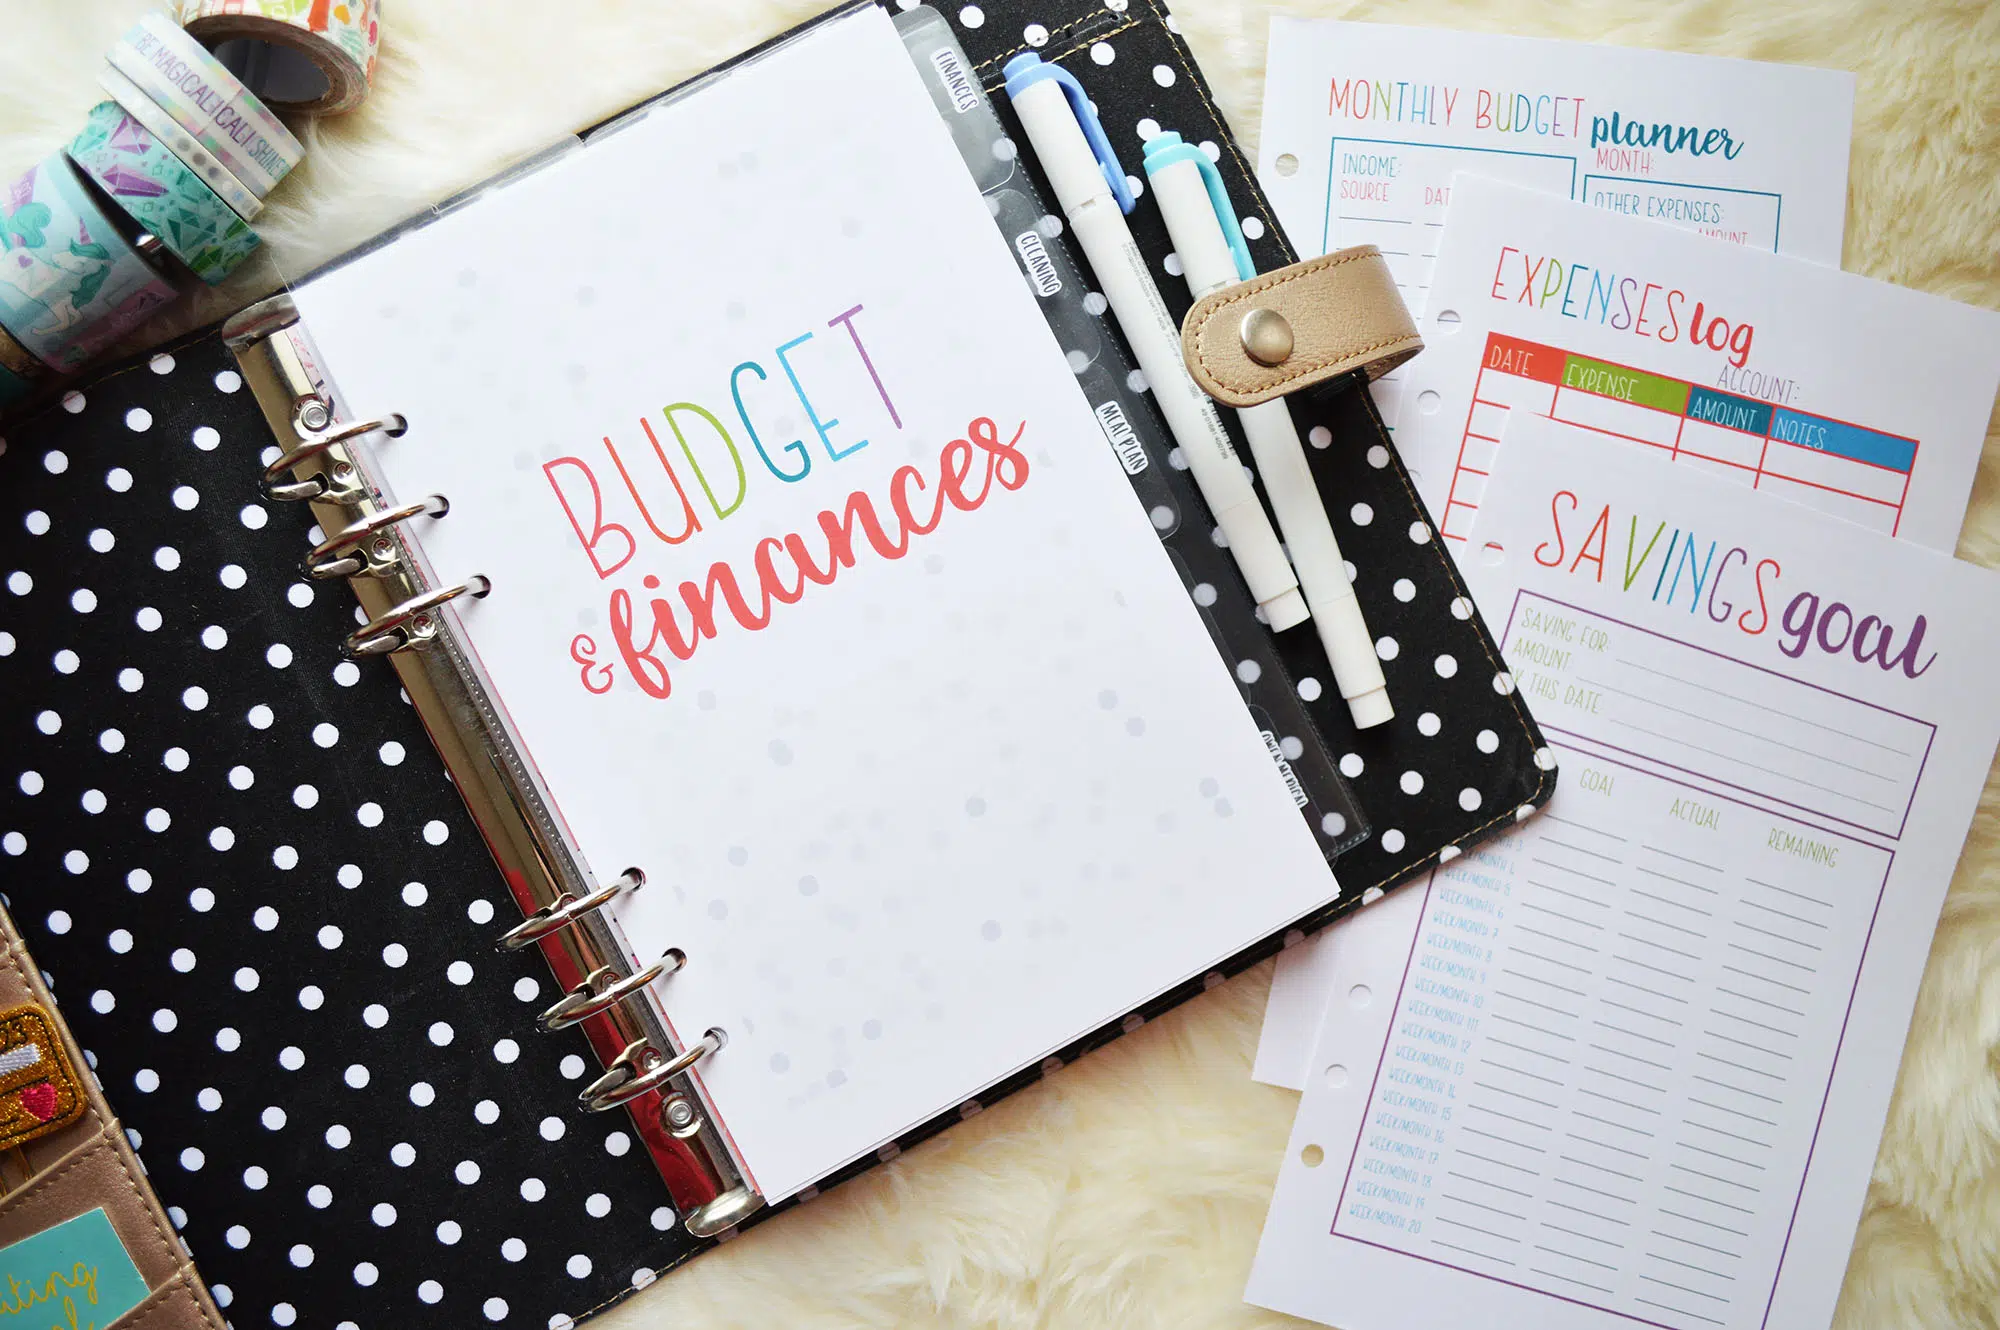 BE MAGICAL
CAL! SHINE
BUDGET
& finances
FINANCES
CLEANING
MEAL PLAN
MEDICAL
MONTHLY BUDGET planner
MONTH:
INCOME:
SOURCE
OTHER EXPENSES:
AMOUNT
EXPENSES log
ACCOUNT:
DATE EXPENSE AMOUNT NOTES
SAVINGS goal
SAVING FOR:
AMOUNT:
THIS DATE:
GOAL ACTUAL REMAINING
WEEK/MONTH 5
WEEK/MONTH 6
WEEK/MONTH 7
WEEK/MONTH 8
WEEK/MONTH 9
WEEK/MONTH 10
WEEK/MONTH 11
WEEK/MONTH 12
WEEK/MONTH 13
WEEK/MONTH 14
WEEK/MONTH 15
WEEK/MONTH 16
WEEK/MONTH 17
WEEK/MONTH 18
WEEK/MONTH 19
WEEK/MONTH 20